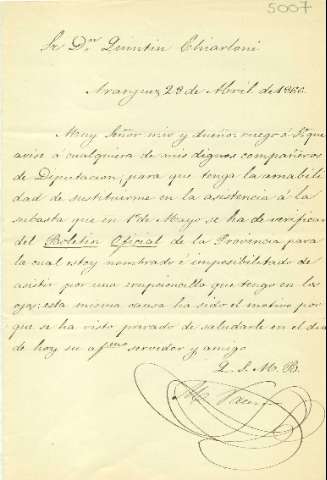 5007
Sr Dn Quintin Chiarloni
Aranjuez 29 de Abril de 1866
Muy Señor mio y dueño: ruego á V. que
avise á cualquiera de mis dignos compañeros
de Diputacion, para que tenga la amabili-
dad de sustituirme en la asistencia á la
subasta que en 1º de Mayo se ha de verificar
del Boletin Oficial de la Provincia para
la cual estoy nombrado é imposibilitado de
asistir por una erupsionolla que tengo en los
ojos; esta misma causa ha sido el motivo por
que se ha visto privado de saludarle en el dia
de hoy su afmo servidor y amigo
Q. S. M. B.